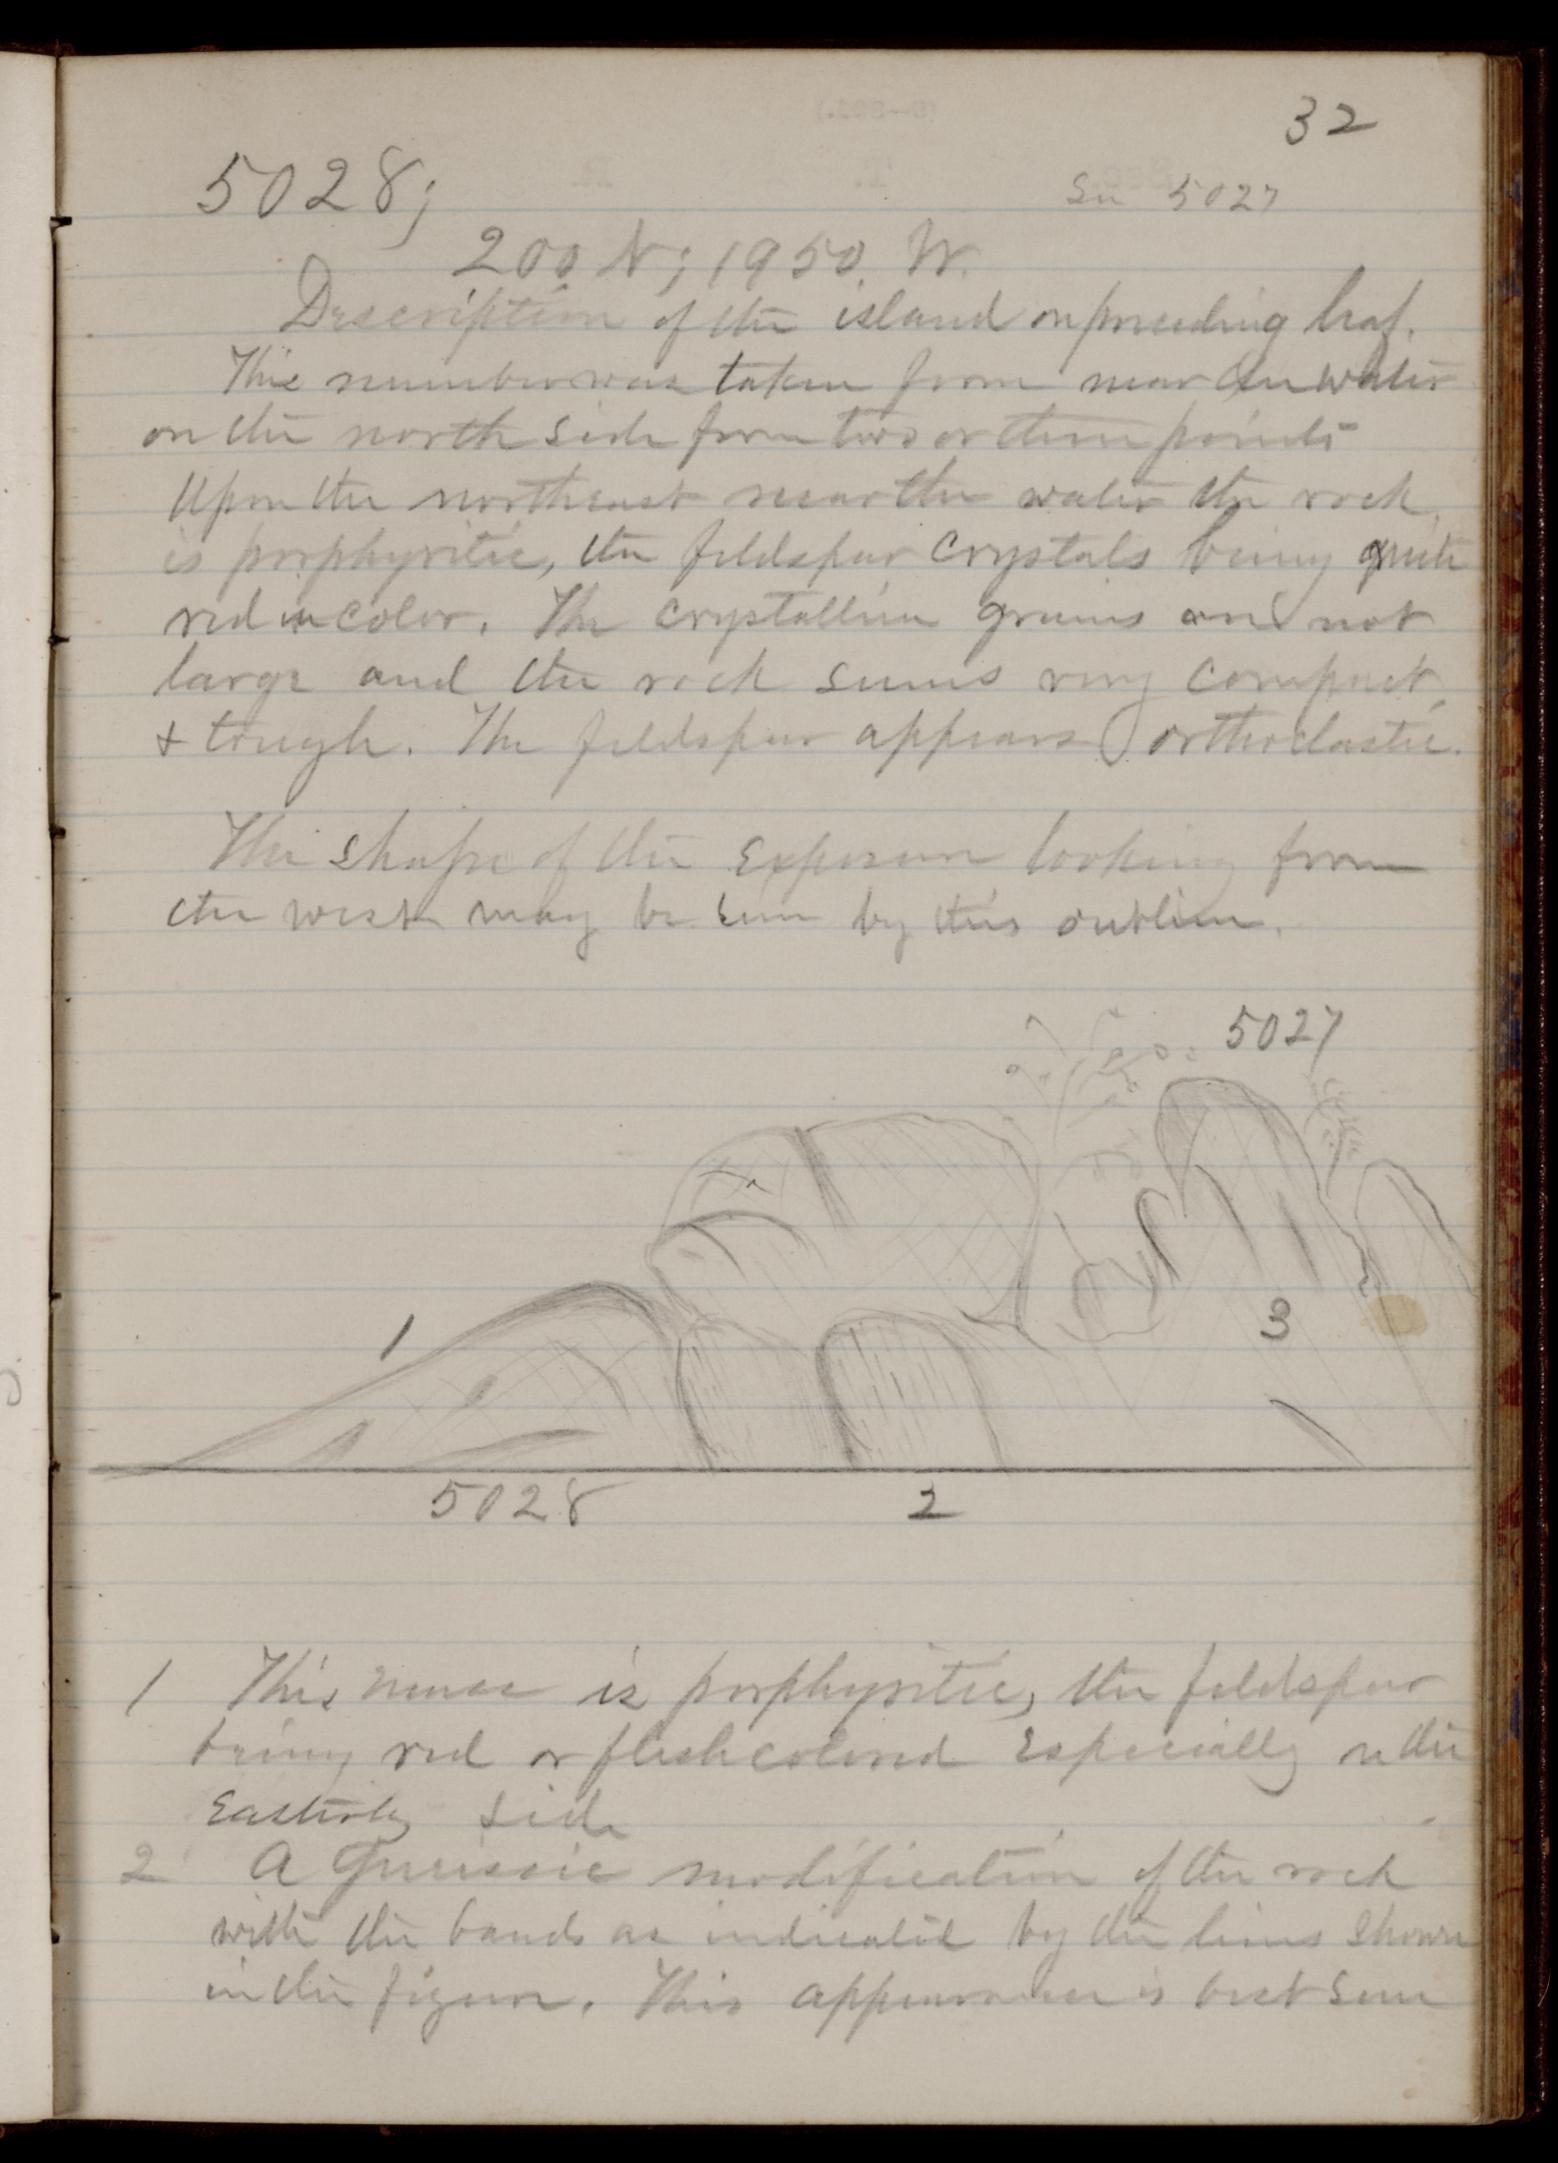 32
5028;
See 5027
200 N; 1950 W.
Description of the island on preceeding leaf.
This number was taken from near the water
on the north side from two or three points
Upon the northeast near the water the rock
is porphyritic, the feldspar crystals being quite
red in color. The crystalline grains are not
large and the rock seems very compact
& tough. The feldspar appears orthoclastic.
The shape of the exposure looking from
the west may be seen by this outline.
5027
1
3
5028
2
1 This mass is porphyritic, the feldspar
being red or flesh colored especially on the
Easterly side
2 A Gneissic modification of the rock
with the bands as indicated by the lines shown
in the figure. This appearance is best seen